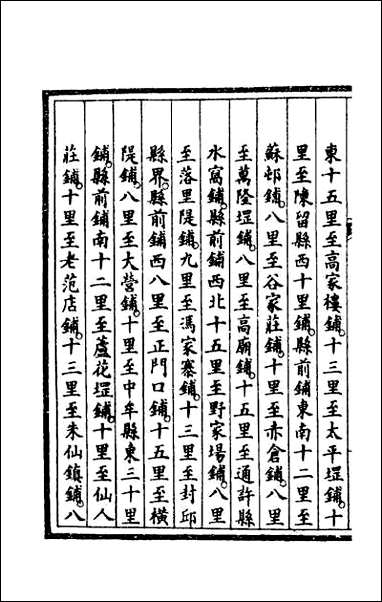 東十五里至高家樓鋪。十三里至太平堽鋪。十
里至陳留縣西十里鋪。縣前鋪東南十二里至
蘇邨鋪。八里至谷家莊鋪。十里至赤倉鋪。八里
至萬隆堽鋪。八里至高廟鋪。十五里至通許縣
水窩鋪。縣前鋪西北十五里至野家場鋪。八里
至落里隄鋪。九里至馮家寨鋪。十三里至封邱
縣界。縣前鋪西八里至正門口鋪。十五里至橫
隄鋪。八里至大營鋪。十里至中牟縣東三十里
鋪。縣前鋪南十二里至蘆花堽鋪。十里至仙人
莊鋪。十里至老范店鋪。十三里至朱仙鎮鋪。八